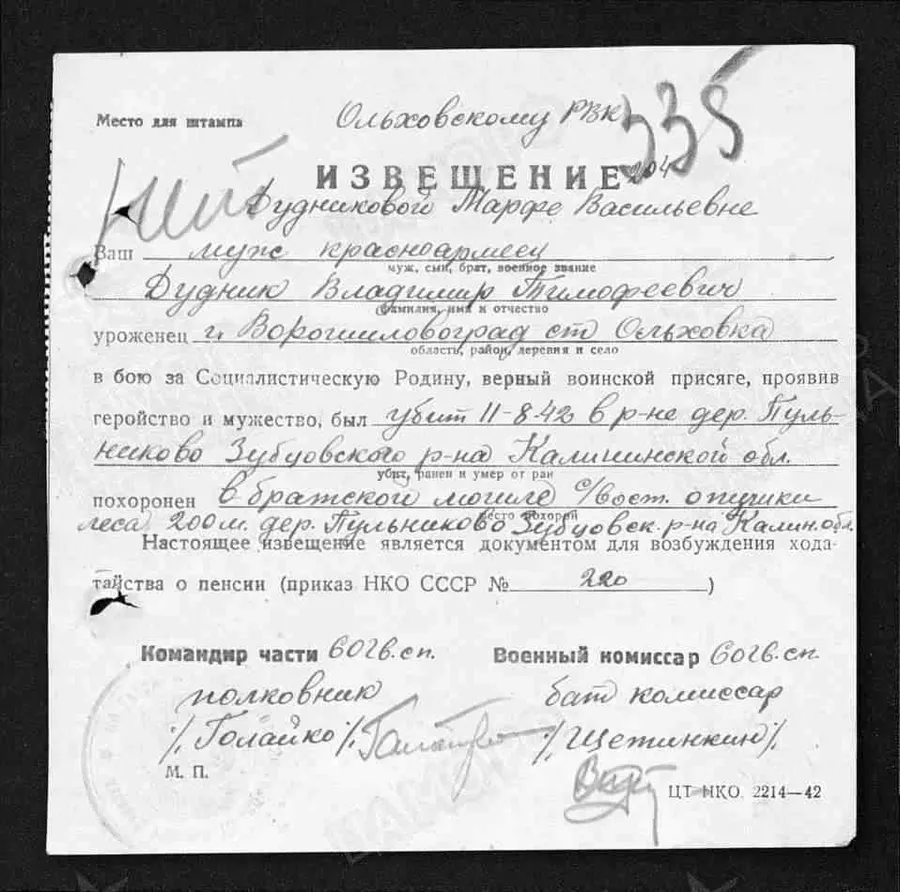 Место для штампа
Ольховскому РВК
335
ИЗВЕЩЕНИЕ 204
Дудниковой Марфе Васильевне
Ваш муж красноармеец
муж, сын, брат, военное звание
Дудник Владимир Тимофеевич
(фамилия, имя и отчество
уроженец г. Ворошиловоград ст Ольховка
область, район, деревня и село
в бою за Социалистическую Родину, верный воинской присяге, проявив
геройство и мужество, был убит 11-8-42 в р-не дер. Пуль-
никово Зубцовского р-на Калининской обл.
убит, ранен и умер от ран
похоронен в братской могиле с/вост. опушки
место похорон
леса 200 м. дер. Пульниково Зубцовск. р-на Калин. обл.
Настоящее извещение является документом для возбуждения хода-
тайства о пенсии (приказ НКО СССР № 220 )
Командир части 60 гв. сп. Военный комиссар 60 гв. сп.
полковник бат комиссар
/Голайко/ /Щетинкин/
М. П.
ЦТ НКО 2214—42